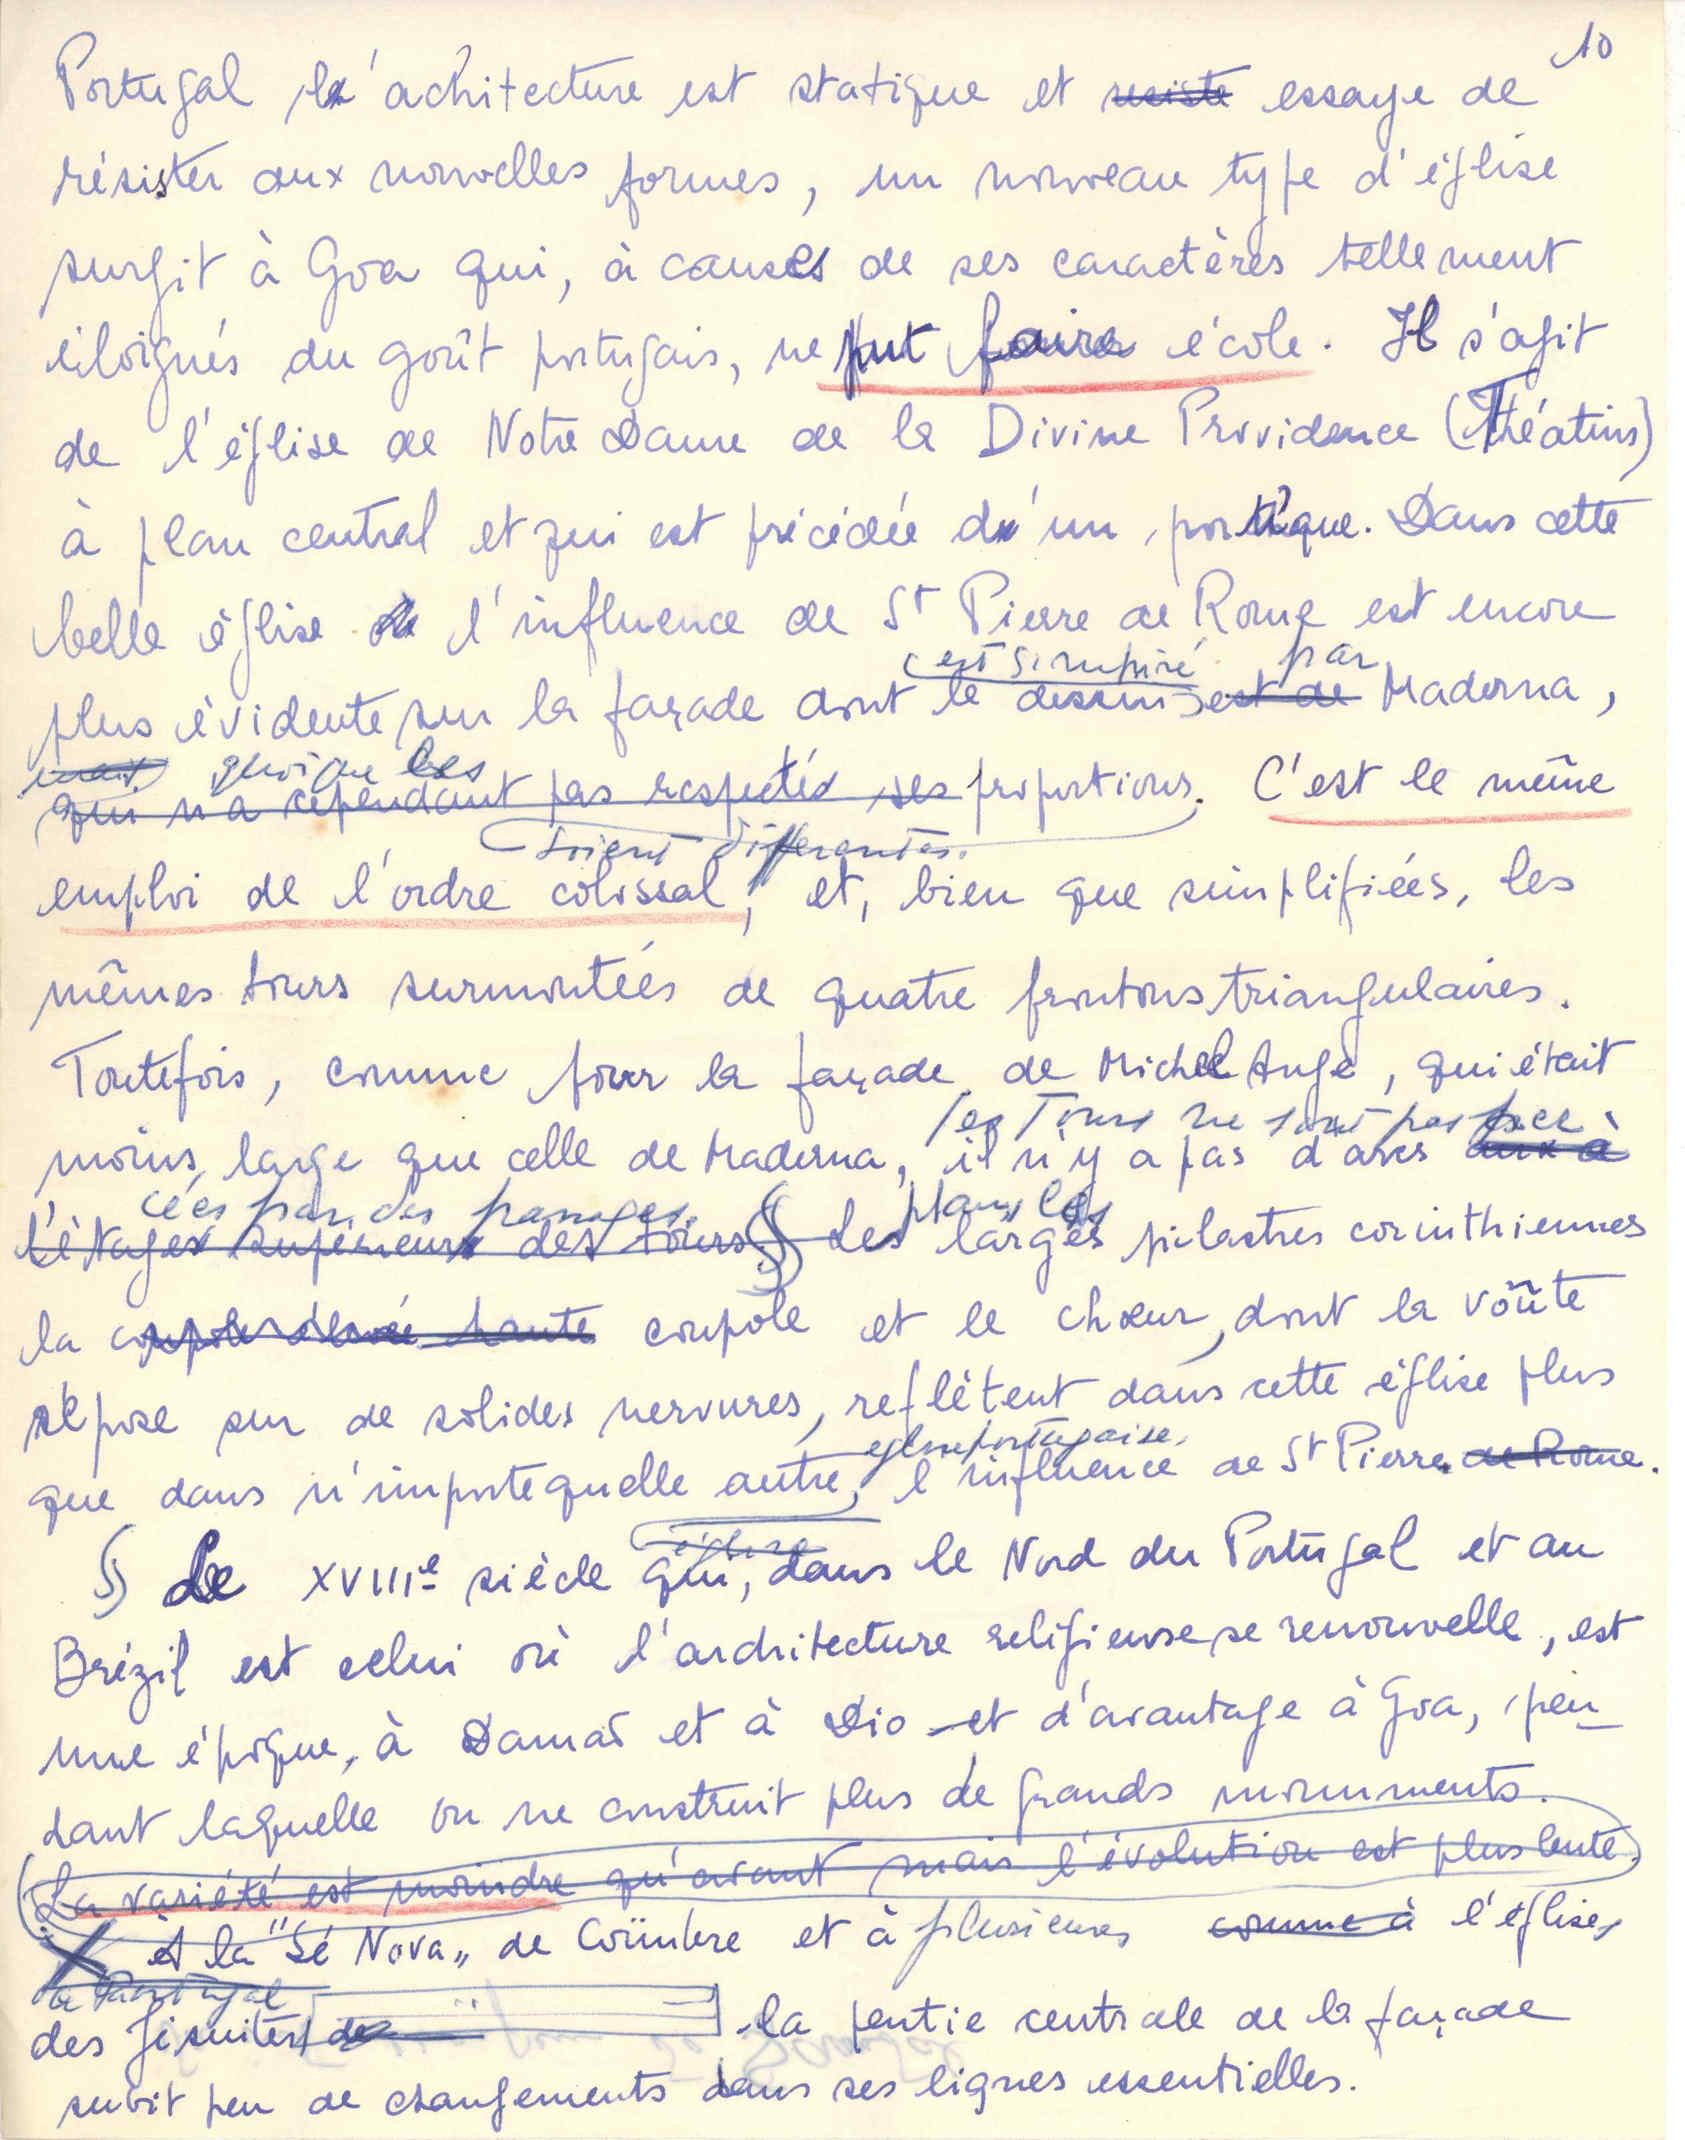 10
Portugal l'achitecture est statique et resiste essaye de
résister aux nouvelles formes, un nouveau type d'église
surgit à Goa qui, à causes de ses caractères tellement
éloignés du goût portugais, ne put faire école. Il s'agit
de l'église de Notre Dame de la Divine Providence (Théatins)
à plan central et qui est précédée d'un portique. Dans cette
belle église l'influence de St Pierre de Rome est encore
est s'inspiré par
plus évidente sur la façade dont le dessin est de Maderna,
mais quoique les
qui n'a cependant pas respectés ses proportions. C'est le même
soient différentes.
emploi de l'ordre colossal, et, bien que simplifiées, les
mêmes tours surmontées de quatre frontons triangulaires.
Toutefois, comme pour la façade de Michel Ange, qui était
les Tours ne sont pas perce
moins large que celle de Maderna, il n'y a pas d'arcs aux à
cées par des passages. plan, les
l'étages supérieurs des tours § Les larges pilastres corinthiennes
la coupole élevée haute coupole et le chœur, dont la voûte
repose sur de solides nervures, reflètent dans cette église plus
église portugaise,
que dans n'importe quelle autre, l'influence de St Pierre de Rome.
église
§ Le XVIIIe siècle qui, dans le Nord du Portugal et au
Brézil est celui où l'architecture religieuse se renouvelle, est
une époque, à Damão et à Dio et d'avantage à Goa, pen-
dant laquelle on ne construit plus de grands monuments.
La variété est moindre qu'avant mais l'évolution est plus lente.
X À la "Sé Nova" de Coïmbre et à plusieurs comme à l'églises
de Portugal
des Jésuites de la partie centrale de la façade
subit peu de changements dans ses lignes essentielles.